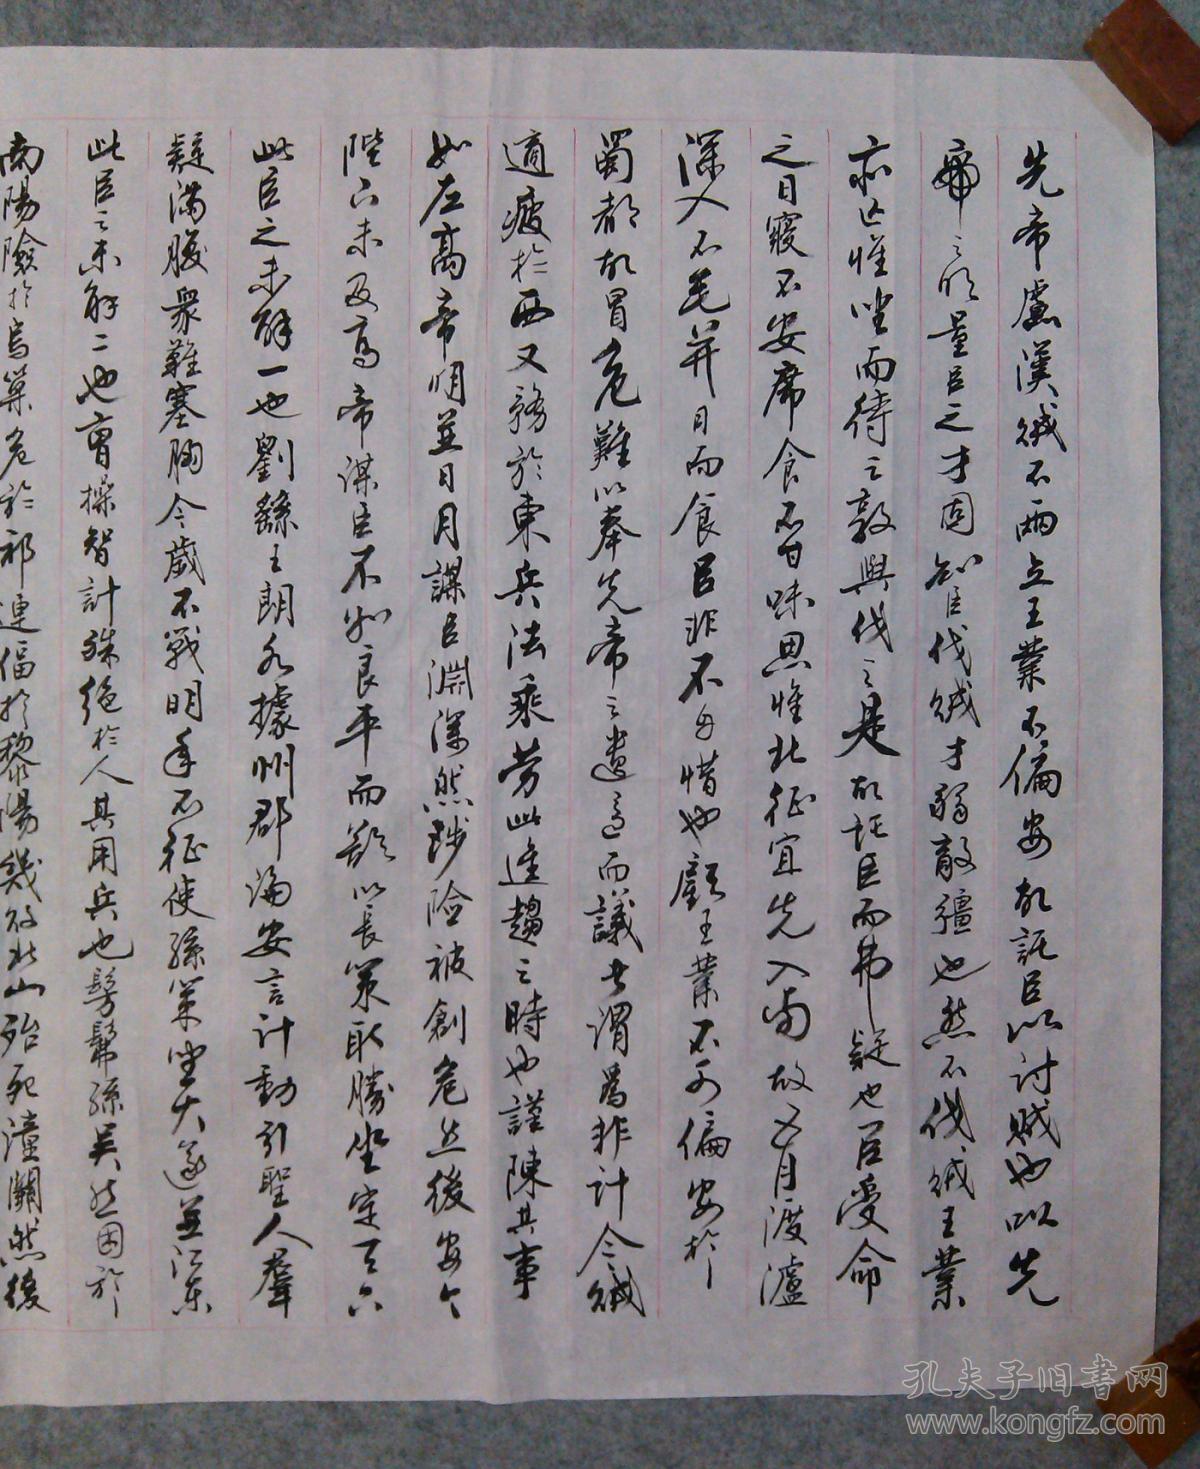 先帝慮漢賊不兩立王業不偏安故託臣以討賊也以先
帝之明量臣之才固知臣伐賊才弱敵彊也然不伐賊王業
亦亡惟坐而待亡孰與伐之是故託臣而弗疑也臣受命
之日寢不安席食不甘味思惟北征宜先入南故五月渡瀘
深入不毛并日而食臣非不自惜也顧王業不可偏安於
蜀都故冒危難以奉先帝之遺意而議者謂為非計今賊
適疲於西又務於東兵法乘勞此進趨之時也謹陳其事
如左高帝明並日月謀臣淵深然涉險被創危然後安今
陛下未及高帝謀臣不如良平而欲以長策取勝坐定天下
此臣之未解一也劉繇王朗各據州郡論安言計動引聖人羣
疑滿腹眾難塞胸今歲不戰明年不征使孫策坐大遂並江東
此臣之未解二也曹操智計殊絕於人其用兵也髣髴孫吳然困於
南陽險於烏巢危於祁連偪於黎陽幾敗北山殆死潼關然後
孔夫子旧书网
www.kongfz.com